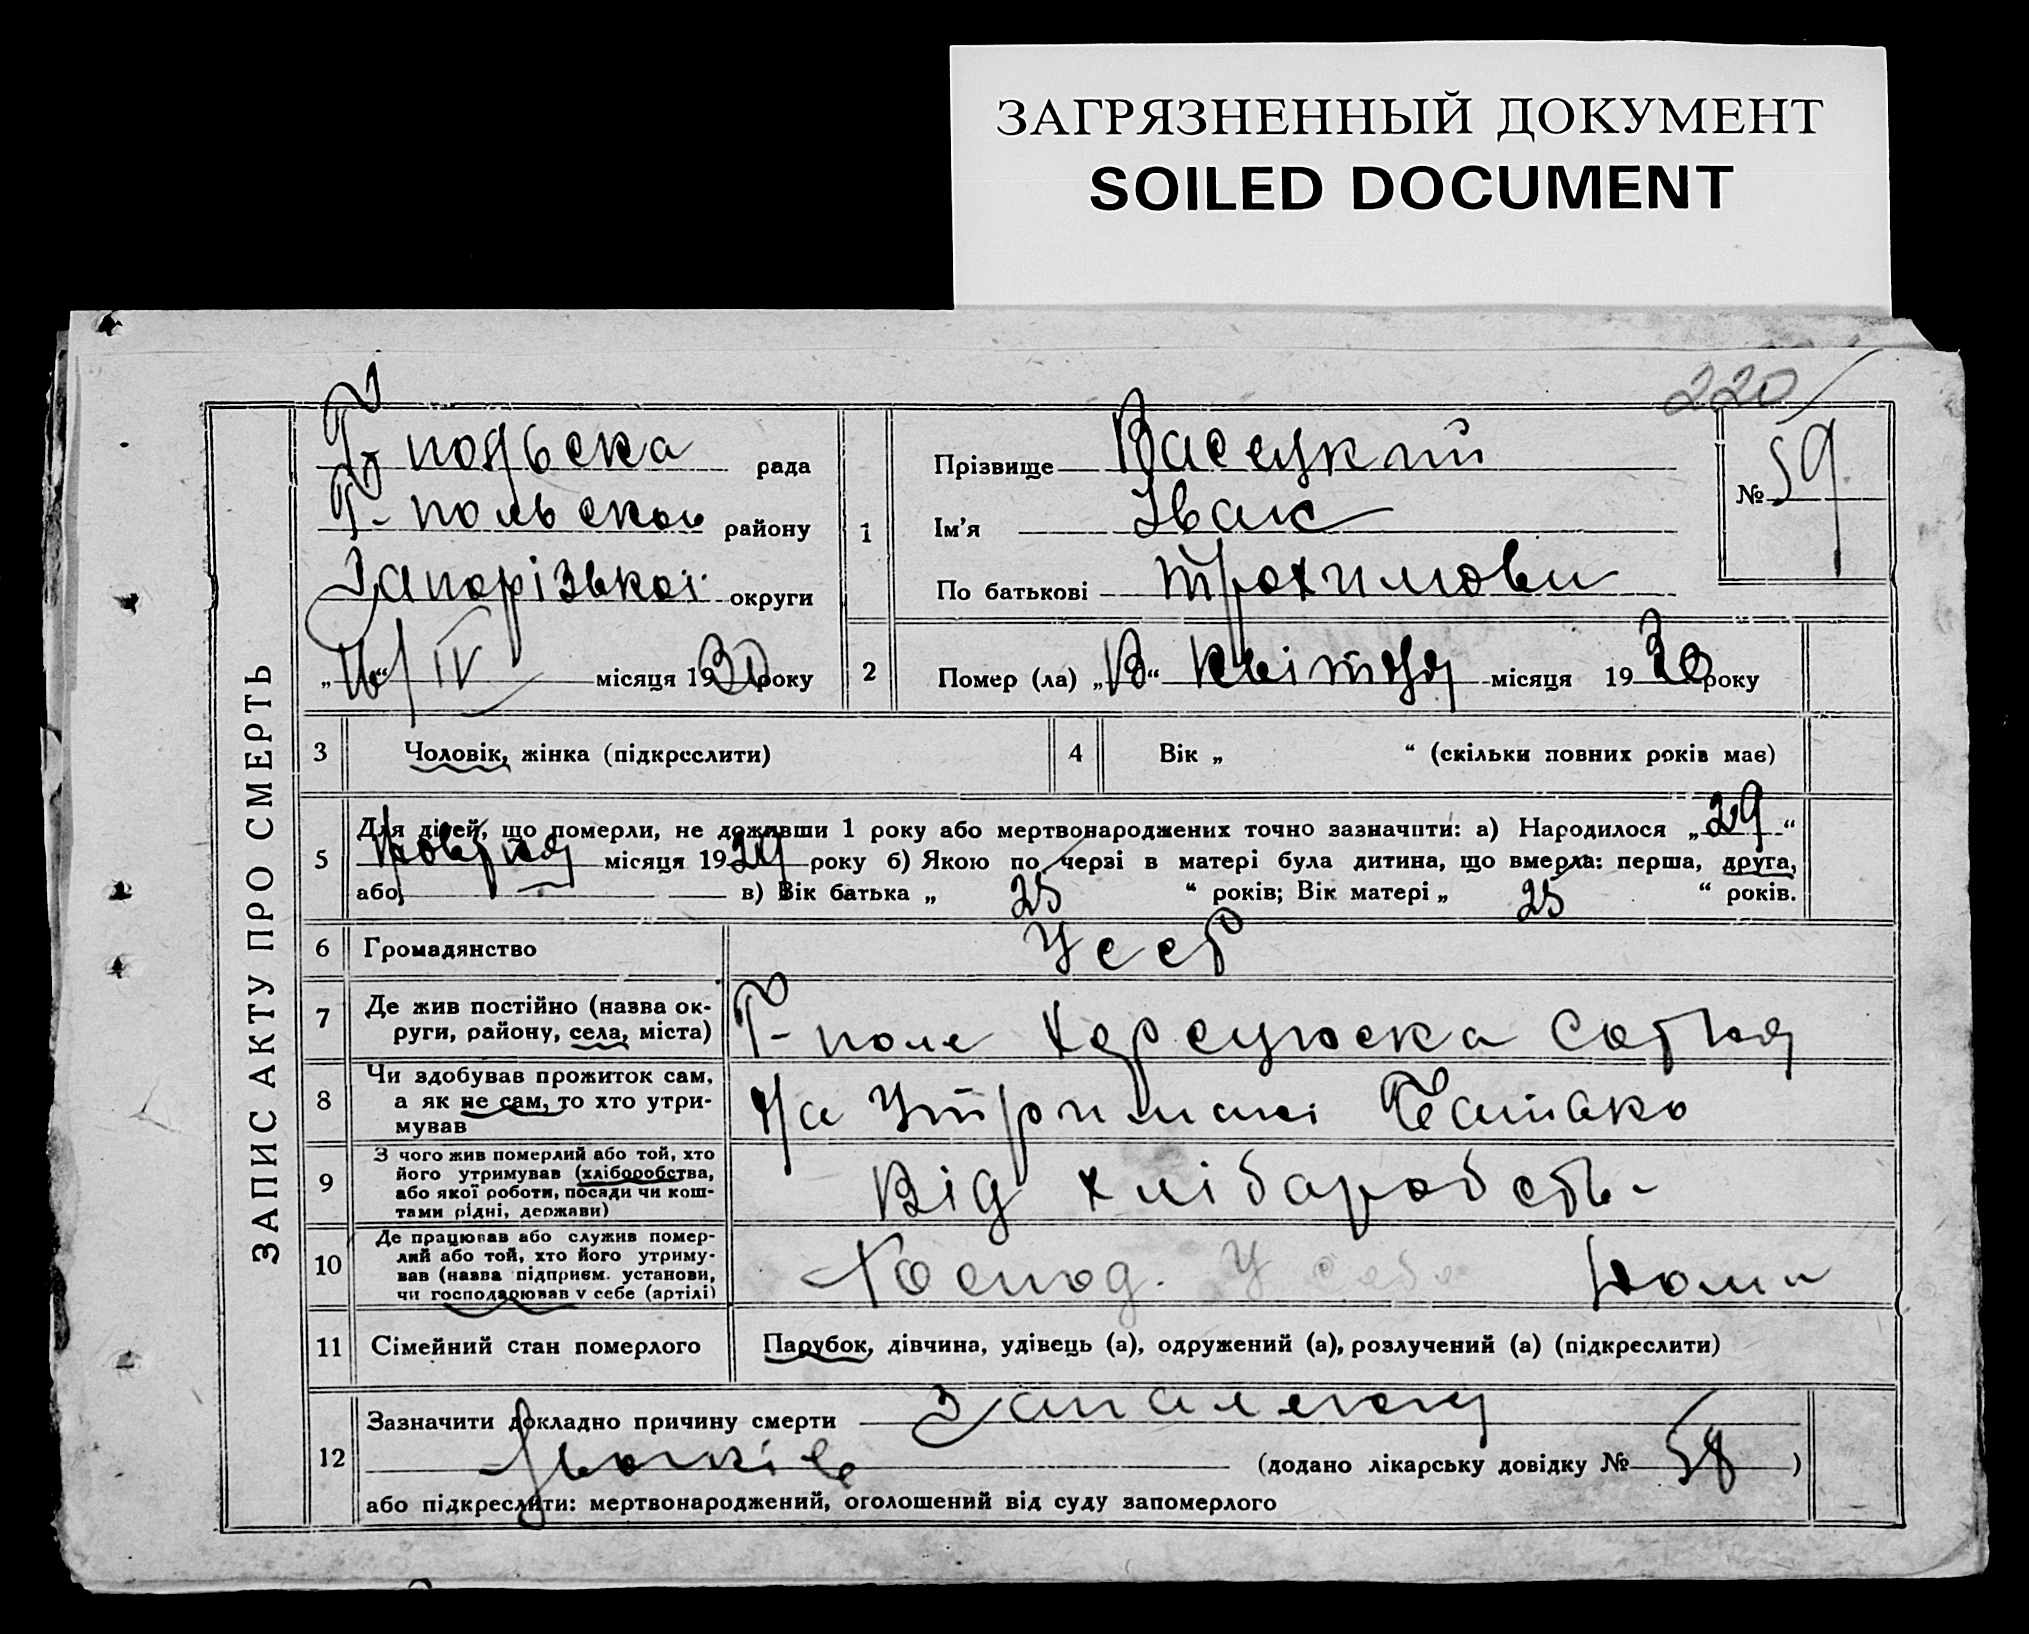 ЗАГРЯЗНЕННЫЙ ДОКУМЕНТ
SOILED DOCUMENT
220
ЗАПИС АКТУ ПРО СМЕРТЬ
рада
Г-польскои району
Запорізької округи
„16“ IV місяця 1930 року
1
Прізвище Васецкий
Ім’я Іван
По батькові Трохимови
№ 59
2
Помер (ла) „13“ квітня місяця 1930 року
3 Чоловік, жінка (підкреслити)
4 Вік „ “ (скільки повних років має)
5 Для дітей, що померли, не доживши 1 року або мертвонароджених точно зазначити: а) Народилося „29“
місяця 1929 року б) Якою по черзі в матері була дитина, що вмерла: перша, друга,
або в) Вік батька „ 25 “ років; Вік матері „ 25 “ років.
6 Громадянство УССР
7 Де жив постійно (назва ок-
руги, району, села, міста)
Г-поле Херсунска Сотня
8 Чи здобував прожиток сам,
а як не сам, то хто утри-
мував
На Утримані Батько
9 З чого жив померлий або той, хто
його утримував (хліборобства,
або якої роботи, посади чи кош-
тами рідні, держави)
Від хлібаробств-
10 Де працював або служив помер-
лий або той, хто його утриму-
вав (назва підприєм. установи,
чи господарював у себе (артілі)
Господ. У себе
11 Сімейний стан померлого Парубок, дівчина, удівець (а), одружений (а), розлучений (а) (підкреслити)
12 Зазначити докладно причину смерти Запалення
(додано лікарську довідку № 58)
або підкреслити: мертвонароджений, оголошений від суду запомерлого